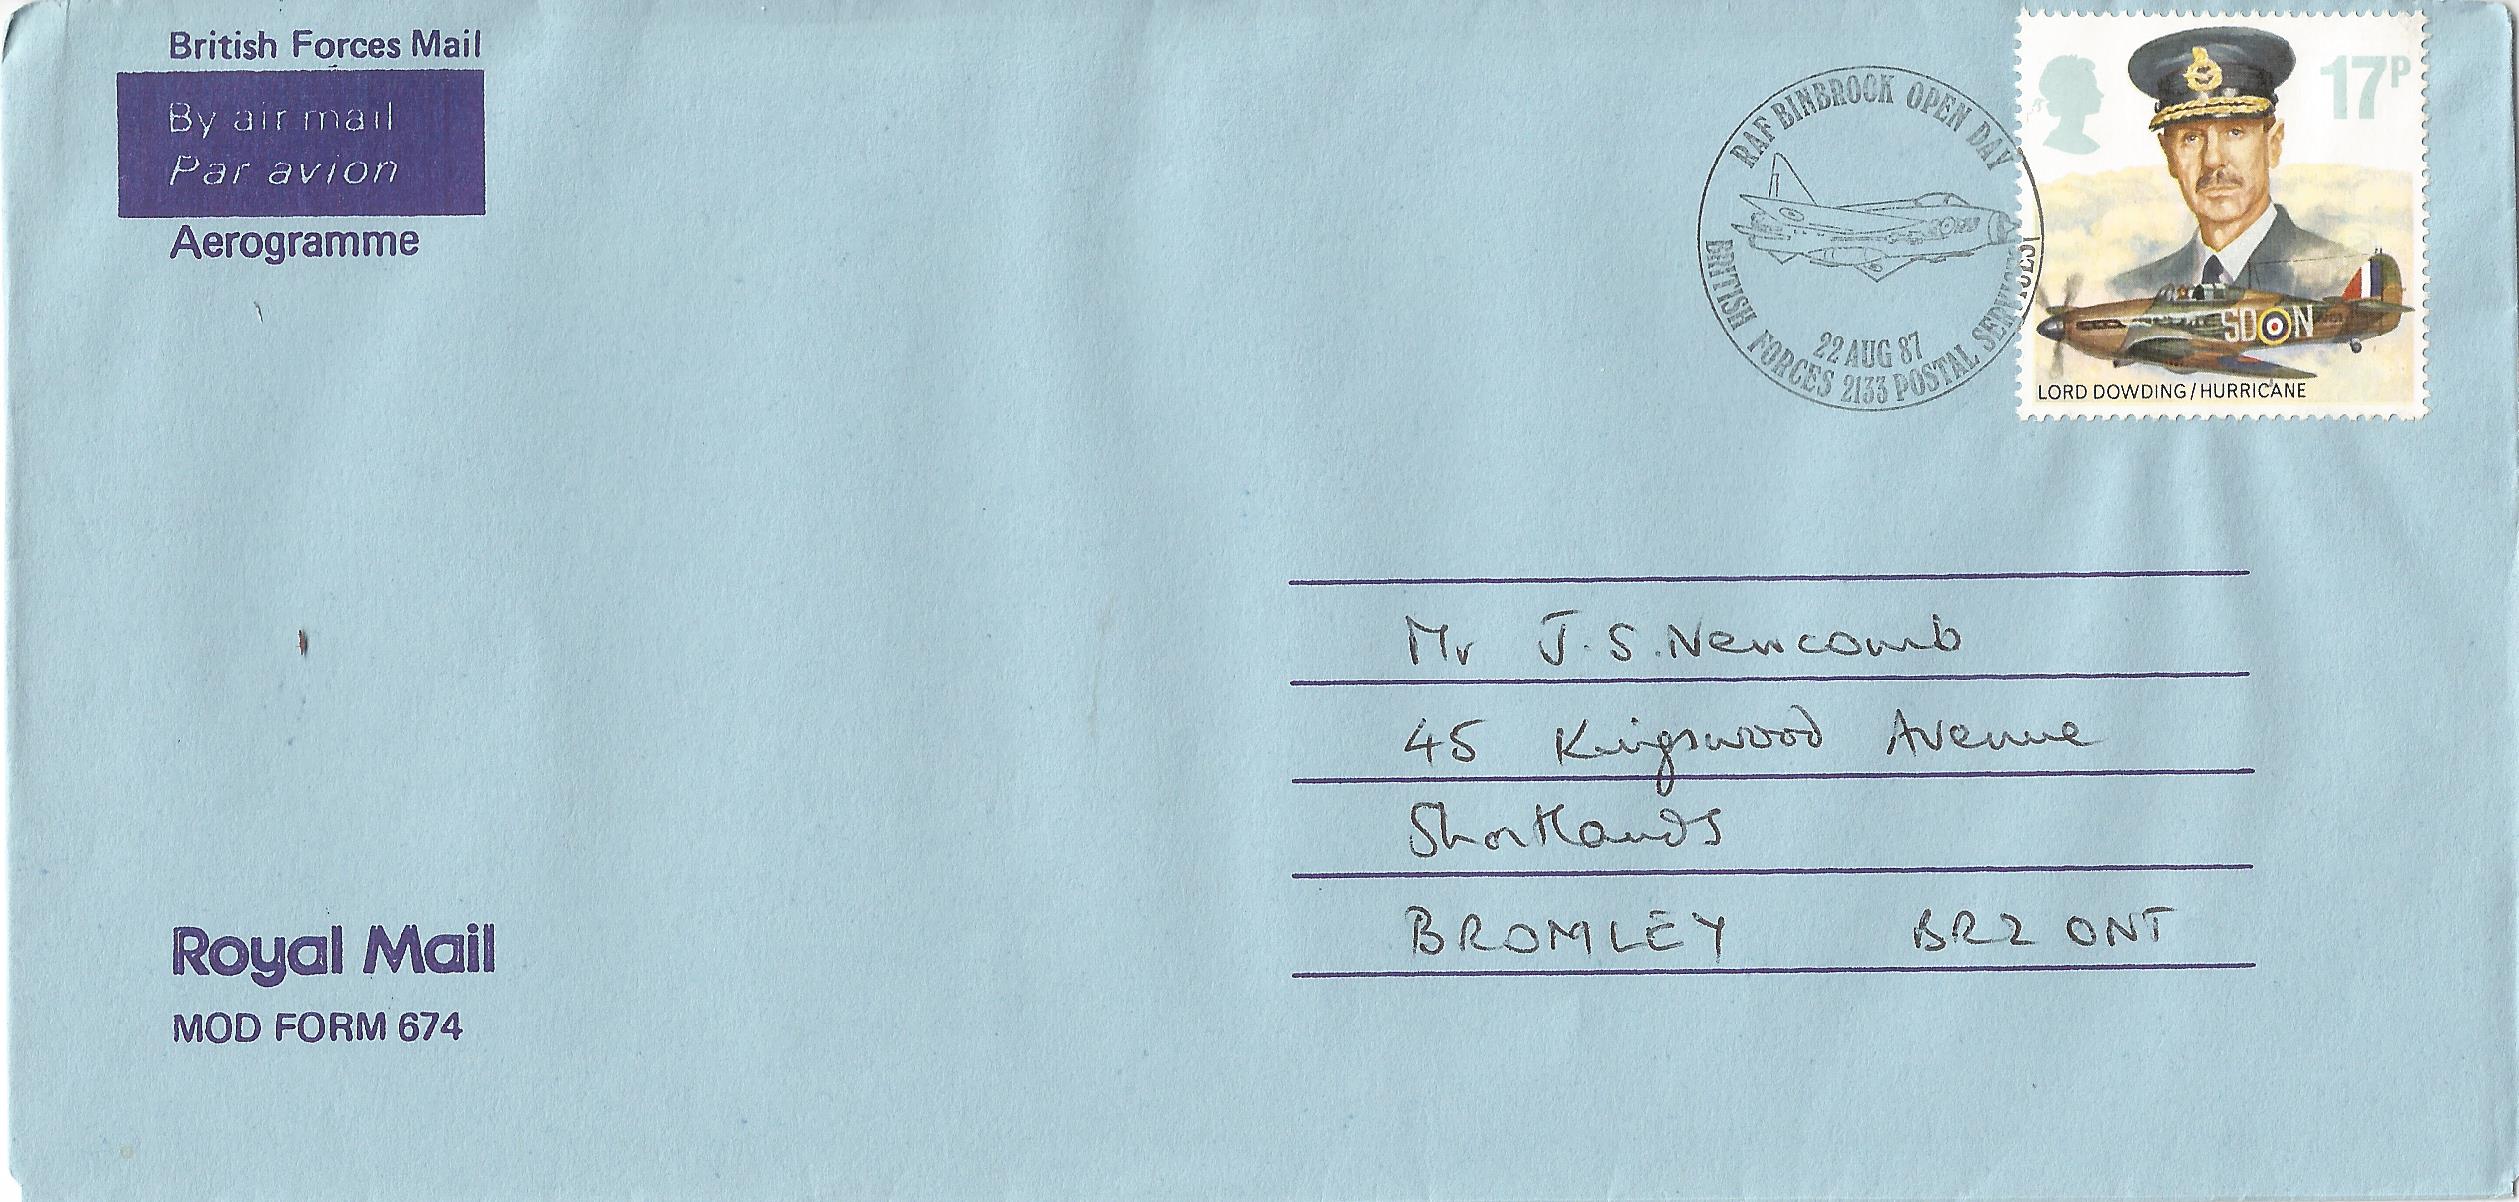 British Forces Mail
By air mail
Par avion
Aerogramme
RAF BINBROOK OPEN DAY
22 AUG 87
BRITISH FORCES 2133 POSTAL SERVICES
17P
SD N
LORD DOWDING/HURRICANE
Mr J.S. Newcomb
45 Kingswood Avenue
Shortlands
BROMLEY BR2 0NT
Royal Mail
MOD FORM 674